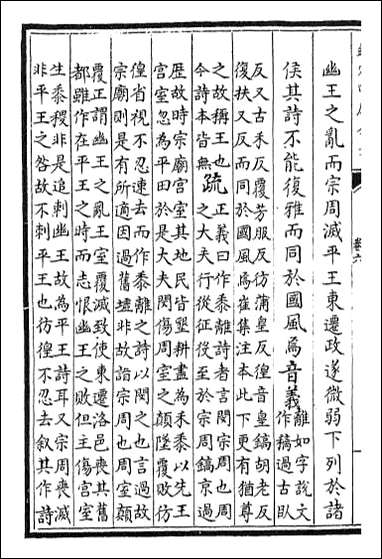 幽王之亂而宗周滅平王東遷政遂微弱下列於諸
侯其詩不能復雅而同於國風焉音義離如字說文
作稿過古臥
反又古禾反覆芳服反彷蒲皇反徨音皇鎬胡老反
復扶又反而同於國風焉崔集注本此下更有猶尊
之故稱王也
今詩本皆無疏正義曰作黍離詩者言閔宗周也周
之大夫行從征役至於宗周鎬京過
歴故時宗廟宫室其地民皆墾耕盡為禾黍以先王
宫室忽為平田於是大夫閔傷周室之顛墜覆敗彷
徨省視不忍速去而作黍離之詩以閔之也言過故
宗廟則是有所適因過舊墟非故詣宗周也周室顛
覆正謂幽王之亂王室覆滅致使東遷洛邑喪其舊
都雖作在平王之時而志恨幽王之敗但主傷宫室
生黍稷非是追刺幽王故為平王詩耳又宗周喪滅
非平王之咎故不刺平王也彷徨不忍去敘其作詩